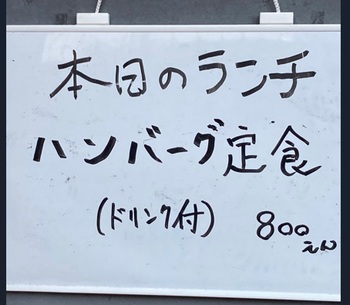 本日のランチ
ハンバーグ定食
(ドリンク付) 800えん